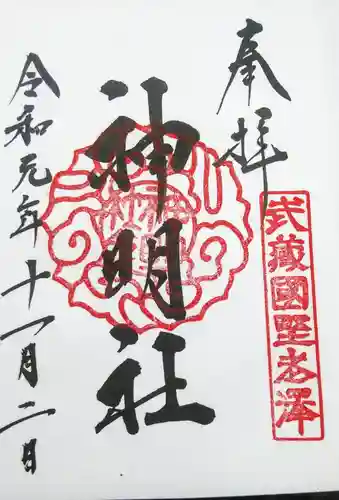 奉拝
武蔵國野水澤
神明社
令和元年十一月二日